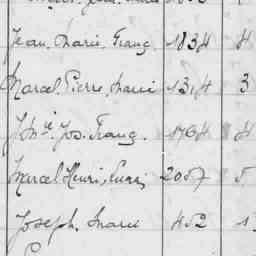 Jean, Marie, Franç. 1834 4
Marcel Pierre, Marie 1314 3
Jos. Franç. 1764 4
Marcel Henri, 2087 5
Joseph, Marie 452 1